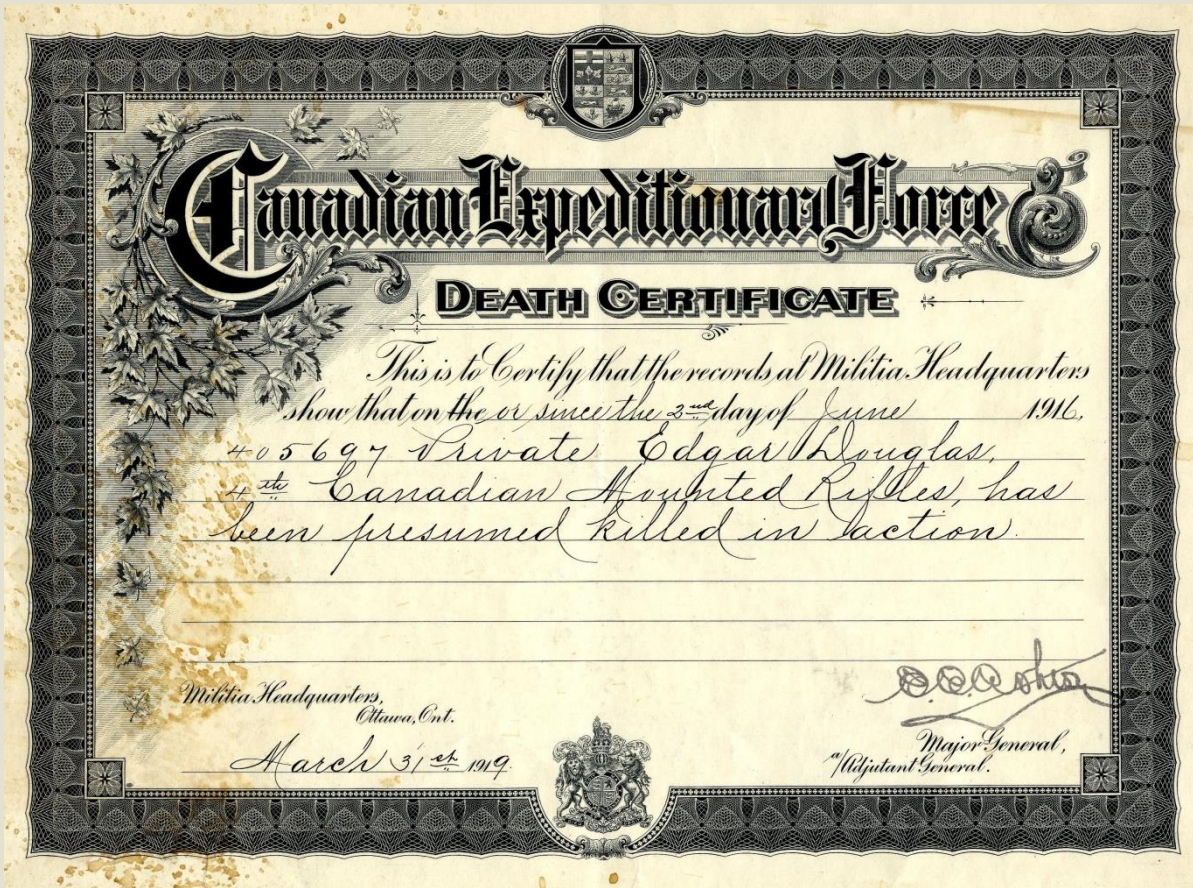 Canadian Expeditionary Force
DEATH CERTIFICATE
This is to Certify that the records at Militia Headquarters
show that on the or since the 2nd day of June 1916,
405697 Private Edgar Douglas,
4th Canadian Mounted Rifles, has
been presumed killed in action.
Militia Headquarters,
Ottawa, Ont.
March 31st 1919.
Major General,
a/Adjutant General.